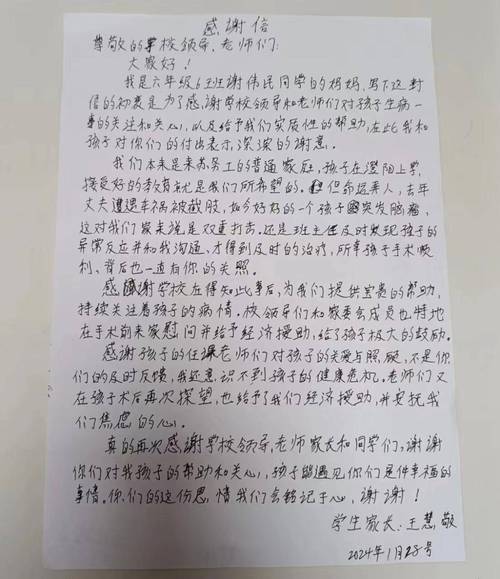 感谢信
尊敬的学校领导、老师们:
大家好!
我是六年级6班谢伟民同学的妈妈,写下这封
信的初衷是为了感谢学校领导和老师们对孩子生病一
事的关注和关心,以及给予我们实质性的帮助,在此我和
孩子对你们的付出表示深深的谢意。
我们本来是来苏务工的普通家庭,孩子在澄阳上学,
接受好的教育就是我们所希望的。但命运弄人,去年
丈夫遭遇车祸被截肢,如今好好的一个孩子突发脑瘤,
这对我们家来说是双重打击。还是班主任及时发现孩子的
异常反应并和我沟通,才得到及时的治疗,所幸孩子手术顺
利、背后也一直有你的关照。
感谢学校在得知此事后,为我们提供宝贵的帮助,
持续关注着孩子的病情。校领导们和家委会成员也特地
在手术前来家慰问并给予经济援助,给了孩子极大的鼓励。
感谢孩子的任课老师们对孩子的关爱与照顾,不是你
们的及时反馈,我还意识不到孩子的健康危机,老师们又
在孩子术后再次探望,也给予我们经济援助,并安抚我
们焦虑的心。
真的再次感谢学校领导、老师家长和同学们,谢谢
你们对我孩子的帮助和关心,孩子能遇见你们是件幸福的
事情。你们的这份恩情我们会铭记于心,谢谢!
学生家长:王慧敬
2024年1月28号